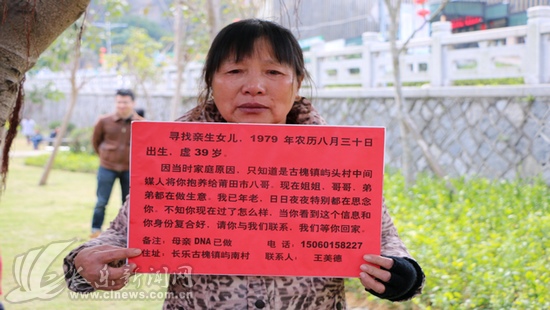 寻找亲生女儿，1979 年农历八月三十日
出生，虚 39 岁。
因当时家庭原因，只知道是古槐镇屿头村中间
媒人将你抱养给莆田市八哥，现在姐姐，哥哥，弟
弟都在做生意。我已年老，日日夜夜特别都在思念
你，不知你现在过了怎么样，当你看到这个信息和
你身份复合好，请你与我们联系，我们等你回家。
备注：母亲 DNA 已做 电 话：15060158227
住址：长乐古槐镇屿南村 联系人：王美德
长乐新闻网
www.clnews.com.cn